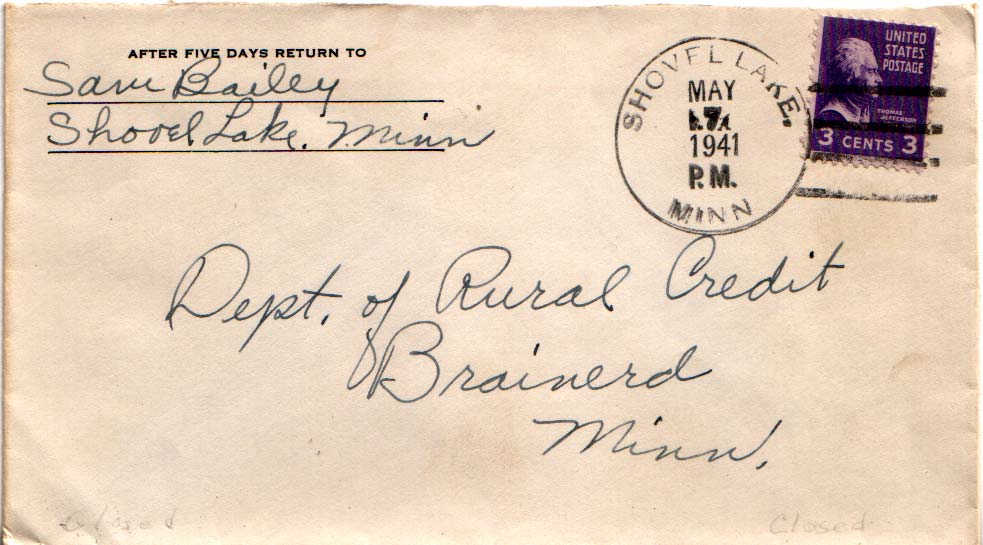 AFTER FIVE DAYS RETURN TO
Sam Bailey
Shovel Lake, Minn
SHOVEL LAKE,
MAY
7
1941
P.M.
MINN
UNITED
STATES
POSTAGE
THOMAS
JEFFERSON
3 CENTS 3
Dept. of Rural Credit
Brainerd
Minn.
Closed
Closed